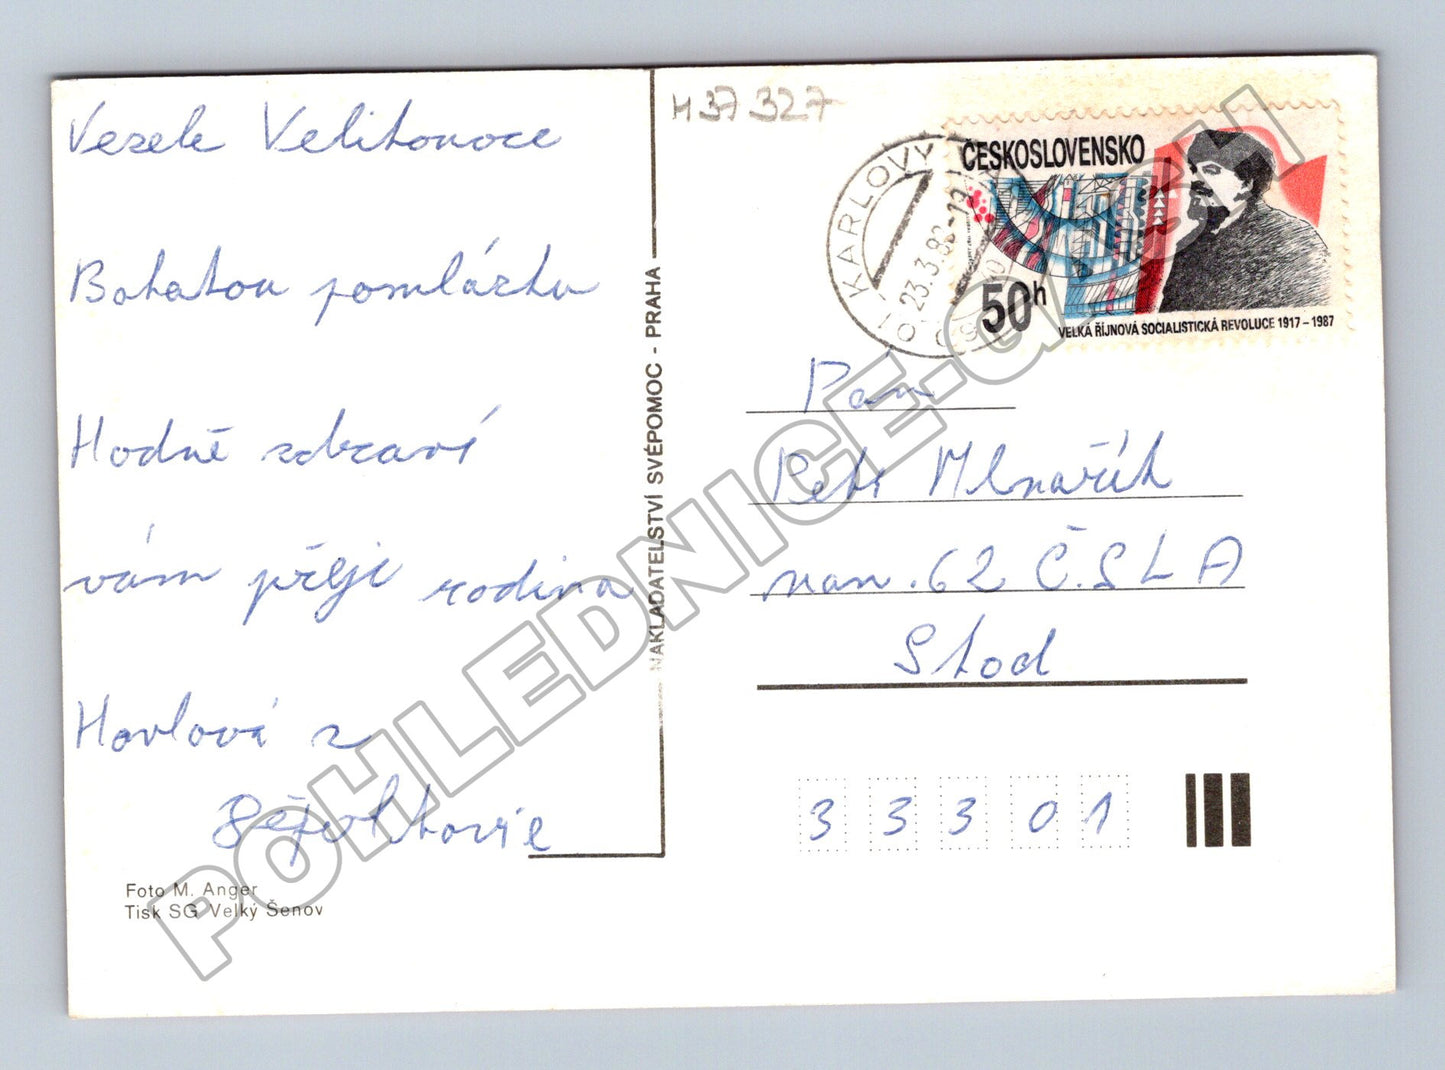 Vesele Velikonoce
Bohatou pomlázku
Hodně zdraví
vám přeje rodina
Havlová z
Foto M. Anger
Tisk SG Velký Šenov
NAKLADATELSTVÍ SVÉPOMOC - PRAHA
M37 327
KARLOVY
23.3.88-19
ČESKOSLOVENSKO
50h
VELKÁ ŘÍJNOVÁ SOCIALISTICKÁ REVOLUCE 1917-1987
Pán
Petr Mlnařík
nam. 62 Č.S L A
Stod
3 3 3 0 1
POHLEDNICE.